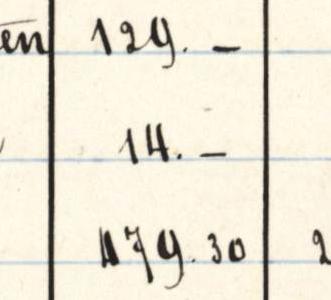 en 129. –
14. –
179.30 2